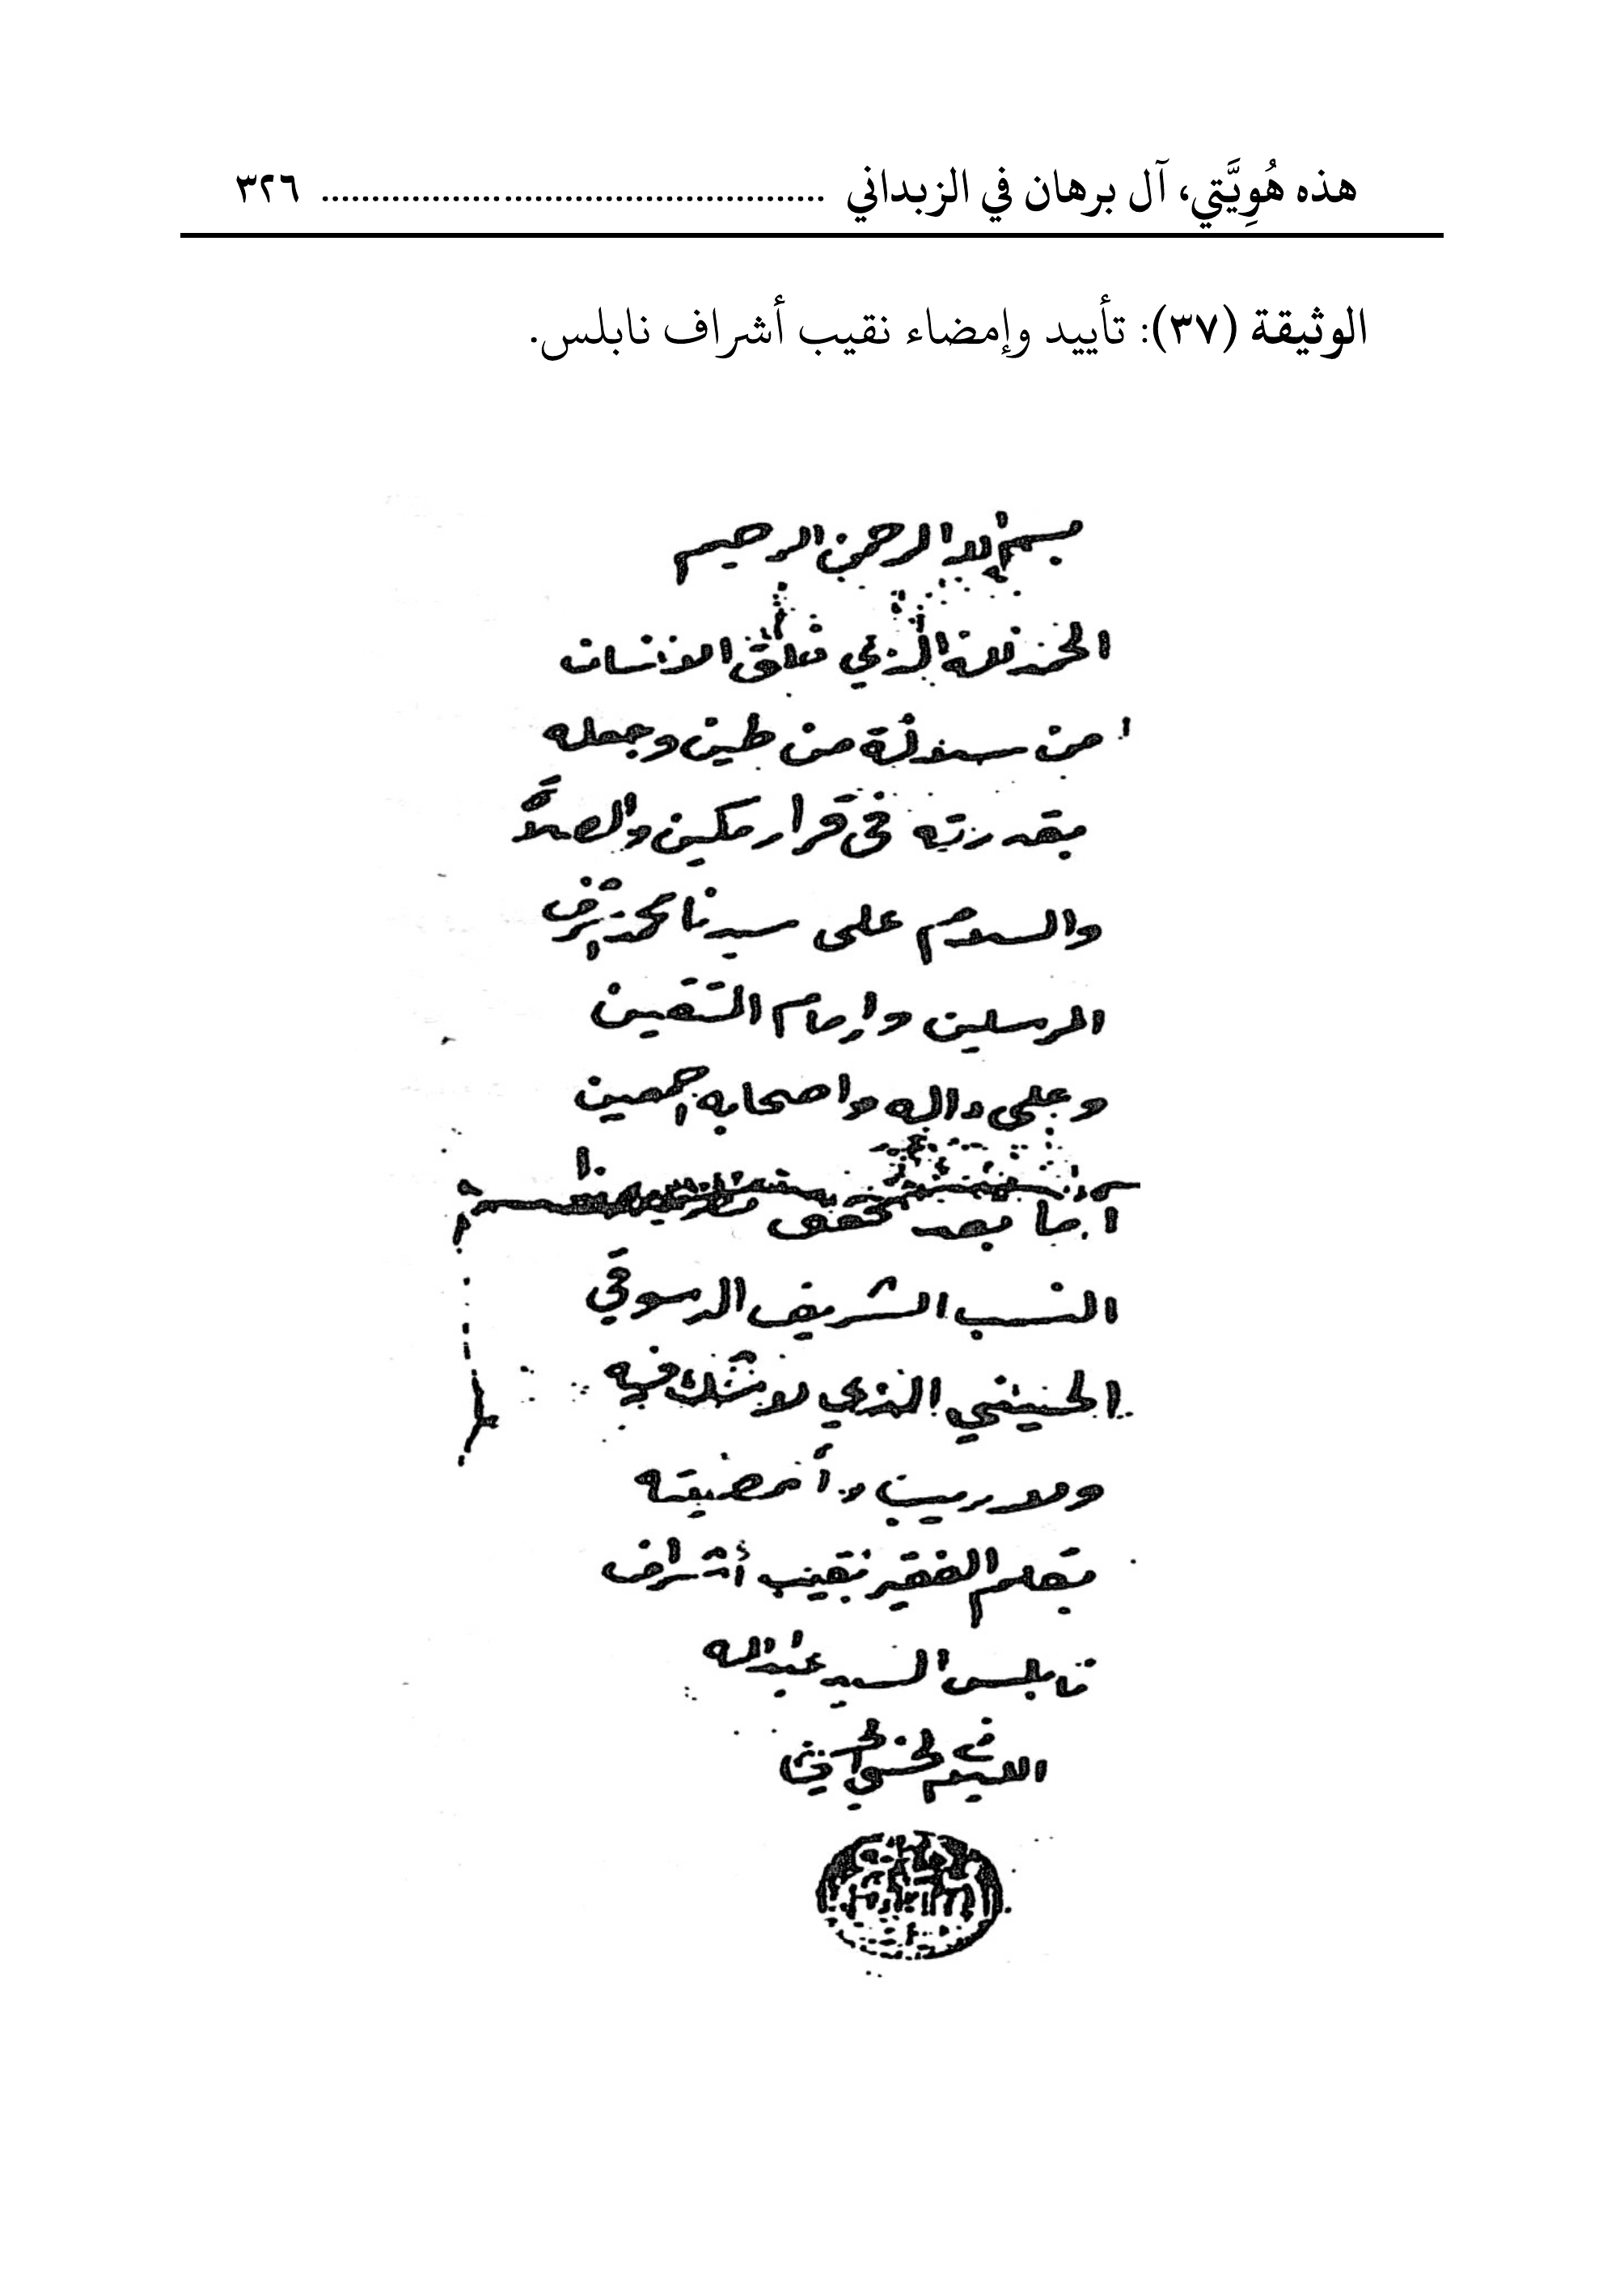 هذه هُوِيَّتي، آل برهان في الزبداني ................................................ ٣٢٦
الوثيقة (٣٧): تأييد وإمضاء نقيب أشراف نابلس.
بسم الله الرحمن الرحيم
الحمد لله الذي خلق الانسان
من سلالة من طين وجعله
بقدرته في قرار مكين والصلاة
والسلام على سيدنا محمد اشرف
المرسلين وإمام المتقين
وعلى واله واصحابه اجمعين
أما بعد تحقق هذا
النسب الشريف الدسوقي
الحسيني الذي لا شك فيه
ولا ريب وأمضيته
بقلم الفقير نقيب أشراف
نابلس السيد عبدالله